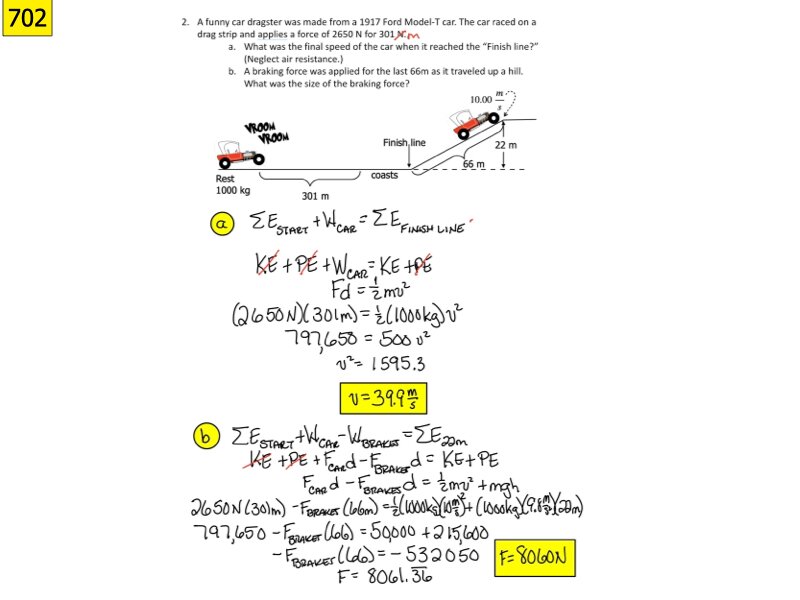 702
2. A funny car dragster was made from a 1917 Ford Model-T car. The car raced on a
drag strip and applies a force of 2650 N for 301 N. m
a. What was the final speed of the car when it reached the "Finish line?"
(Neglect air resistance.)
b. A braking force was applied for the last 66m as it traveled up a hill.
What was the size of the braking force?
10.00 m/s
VROOM
VROOM
Finish line
22 m
66 m
coasts
Rest
1000 kg
301 m
a ΣE_START + W_CAR = ΣE_FINISH LINE
KE + PE + W_CAR = KE + PE
Fd = 1/2 mv²
(2650N)(301m) = 1/2 (1000kg) v²
797,650 = 500 v²
v² = 1595.3
v = 39.9 m/s
b ΣE_START + W_CAR - W_BRAKES = ΣE_22m
KE + PE + F_CAR d - F_BRAKES d = KE + PE
F_CAR d - F_BRAKES d = 1/2 mv² + mgh
2650N(301m) - F_BRAKES (66m) = 1/2 (1000kg)(10 m/s)² + (1000kg)(9.8 m/s²)(22m)
797,650 - F_BRAKES (66) = 50,000 + 215,600
- F_BRAKES (66) = - 532050
F = 8060N
F = 8061.36